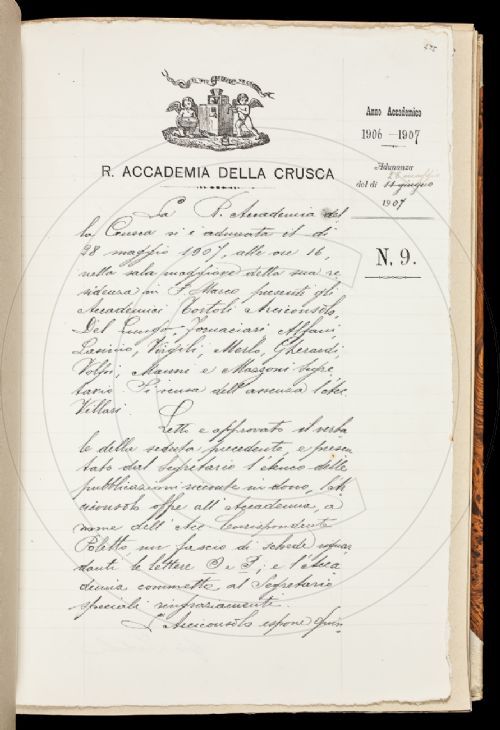 R. ACCADEMIA DELLA CRUSCA
Anno Accademico
1906-1907
Adunanza
28 maggio
del dì 11 giugno
1907
N. 9.
La R. Accademia del
la Crusca si è adunata il dì
28 maggio 1907, alle ore 16,
nella sala maggiore della sua re
sidenza in S. Marco, presenti gli
Accademici Tortoli Arciconsolo,
Del Lungo, Fornaciari, Alfani,
Lasinio, Virgili, Merlo, Gherardi,
Volpi, Manni e Mazzoni Segre
tario. Si scusa dell'assenza l'Acc.
Villari.
Letto e approvato il verba
le della seduta precedente, e presen
tato dal Segretario l'elenco delle
pubblicazioni ricevute in dono, l'Ar
ciconsolo offre all'Accademia, a
nome dell'Acc. Corrispondente
Poletto un fascio di schede riguar
danti le lettere O e P; e l'Acca
demia commette al Segretario
speciali ringraziamenti.
L'Arciconsolo espone quin